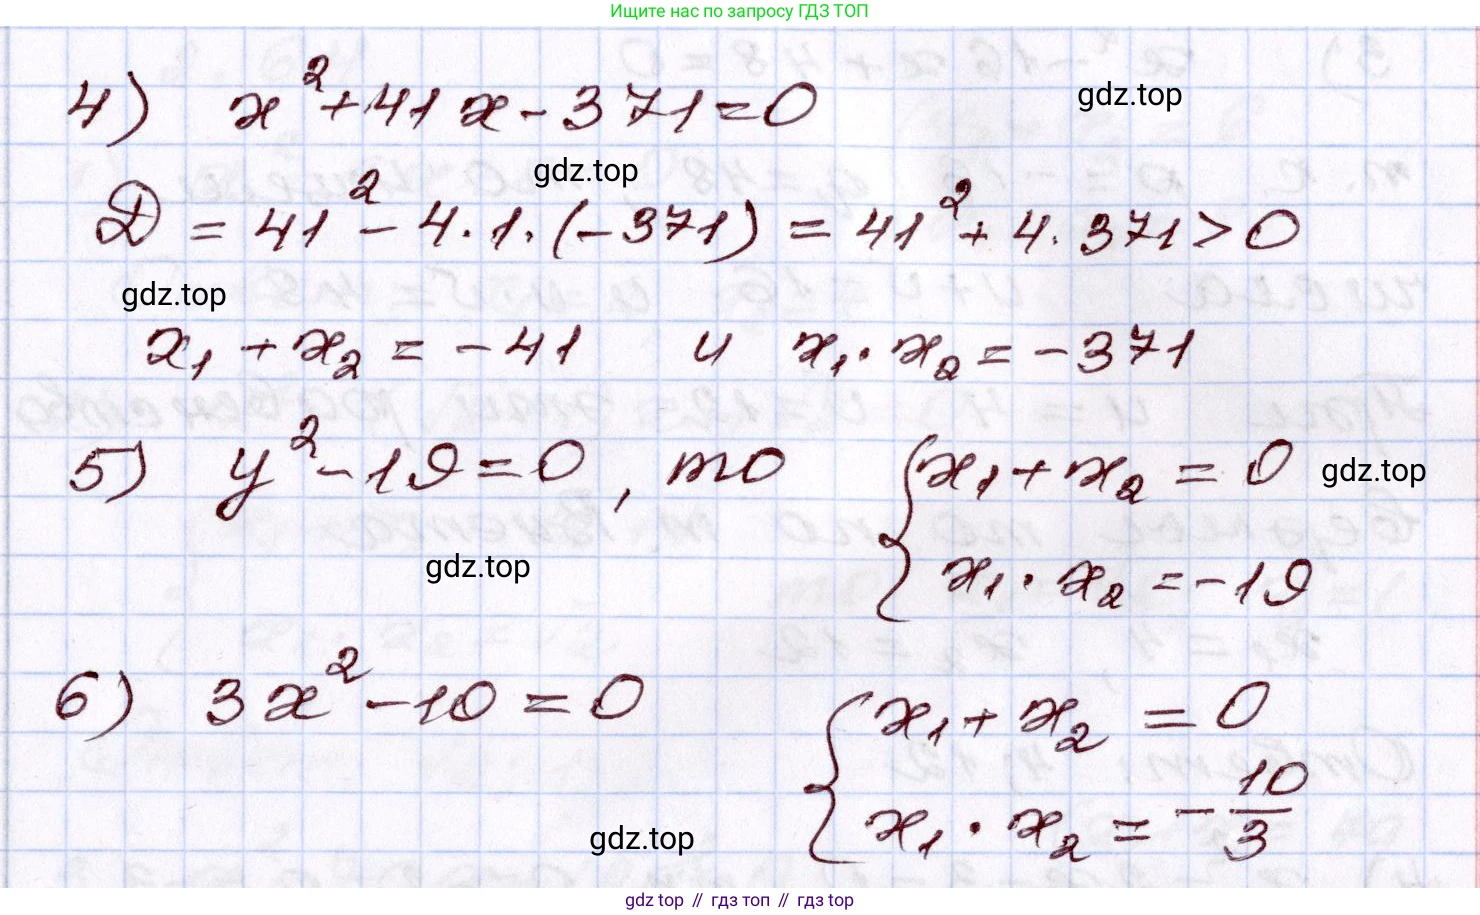 Ищите нас по запросу ГДЗ ТОП
4) x² + 41x - 371 = 0
gdz.top
gdz.top
D = 41² - 4 · 1 · (-371) = 41² + 4 · 371 > 0
gdz.top
x₁ + x₂ = -41 и x₁ · x₂ = -371
5) y² - 19 = 0, то { x₁ + x₂ = 0
gdz.top
x₁ · x₂ = -19
gdz.top
6) 3x² - 10 = 0 { x₁ + x₂ = 0
x₁ · x₂ = -10/3
gdz.top
gdz top // гдз топ // гдз top